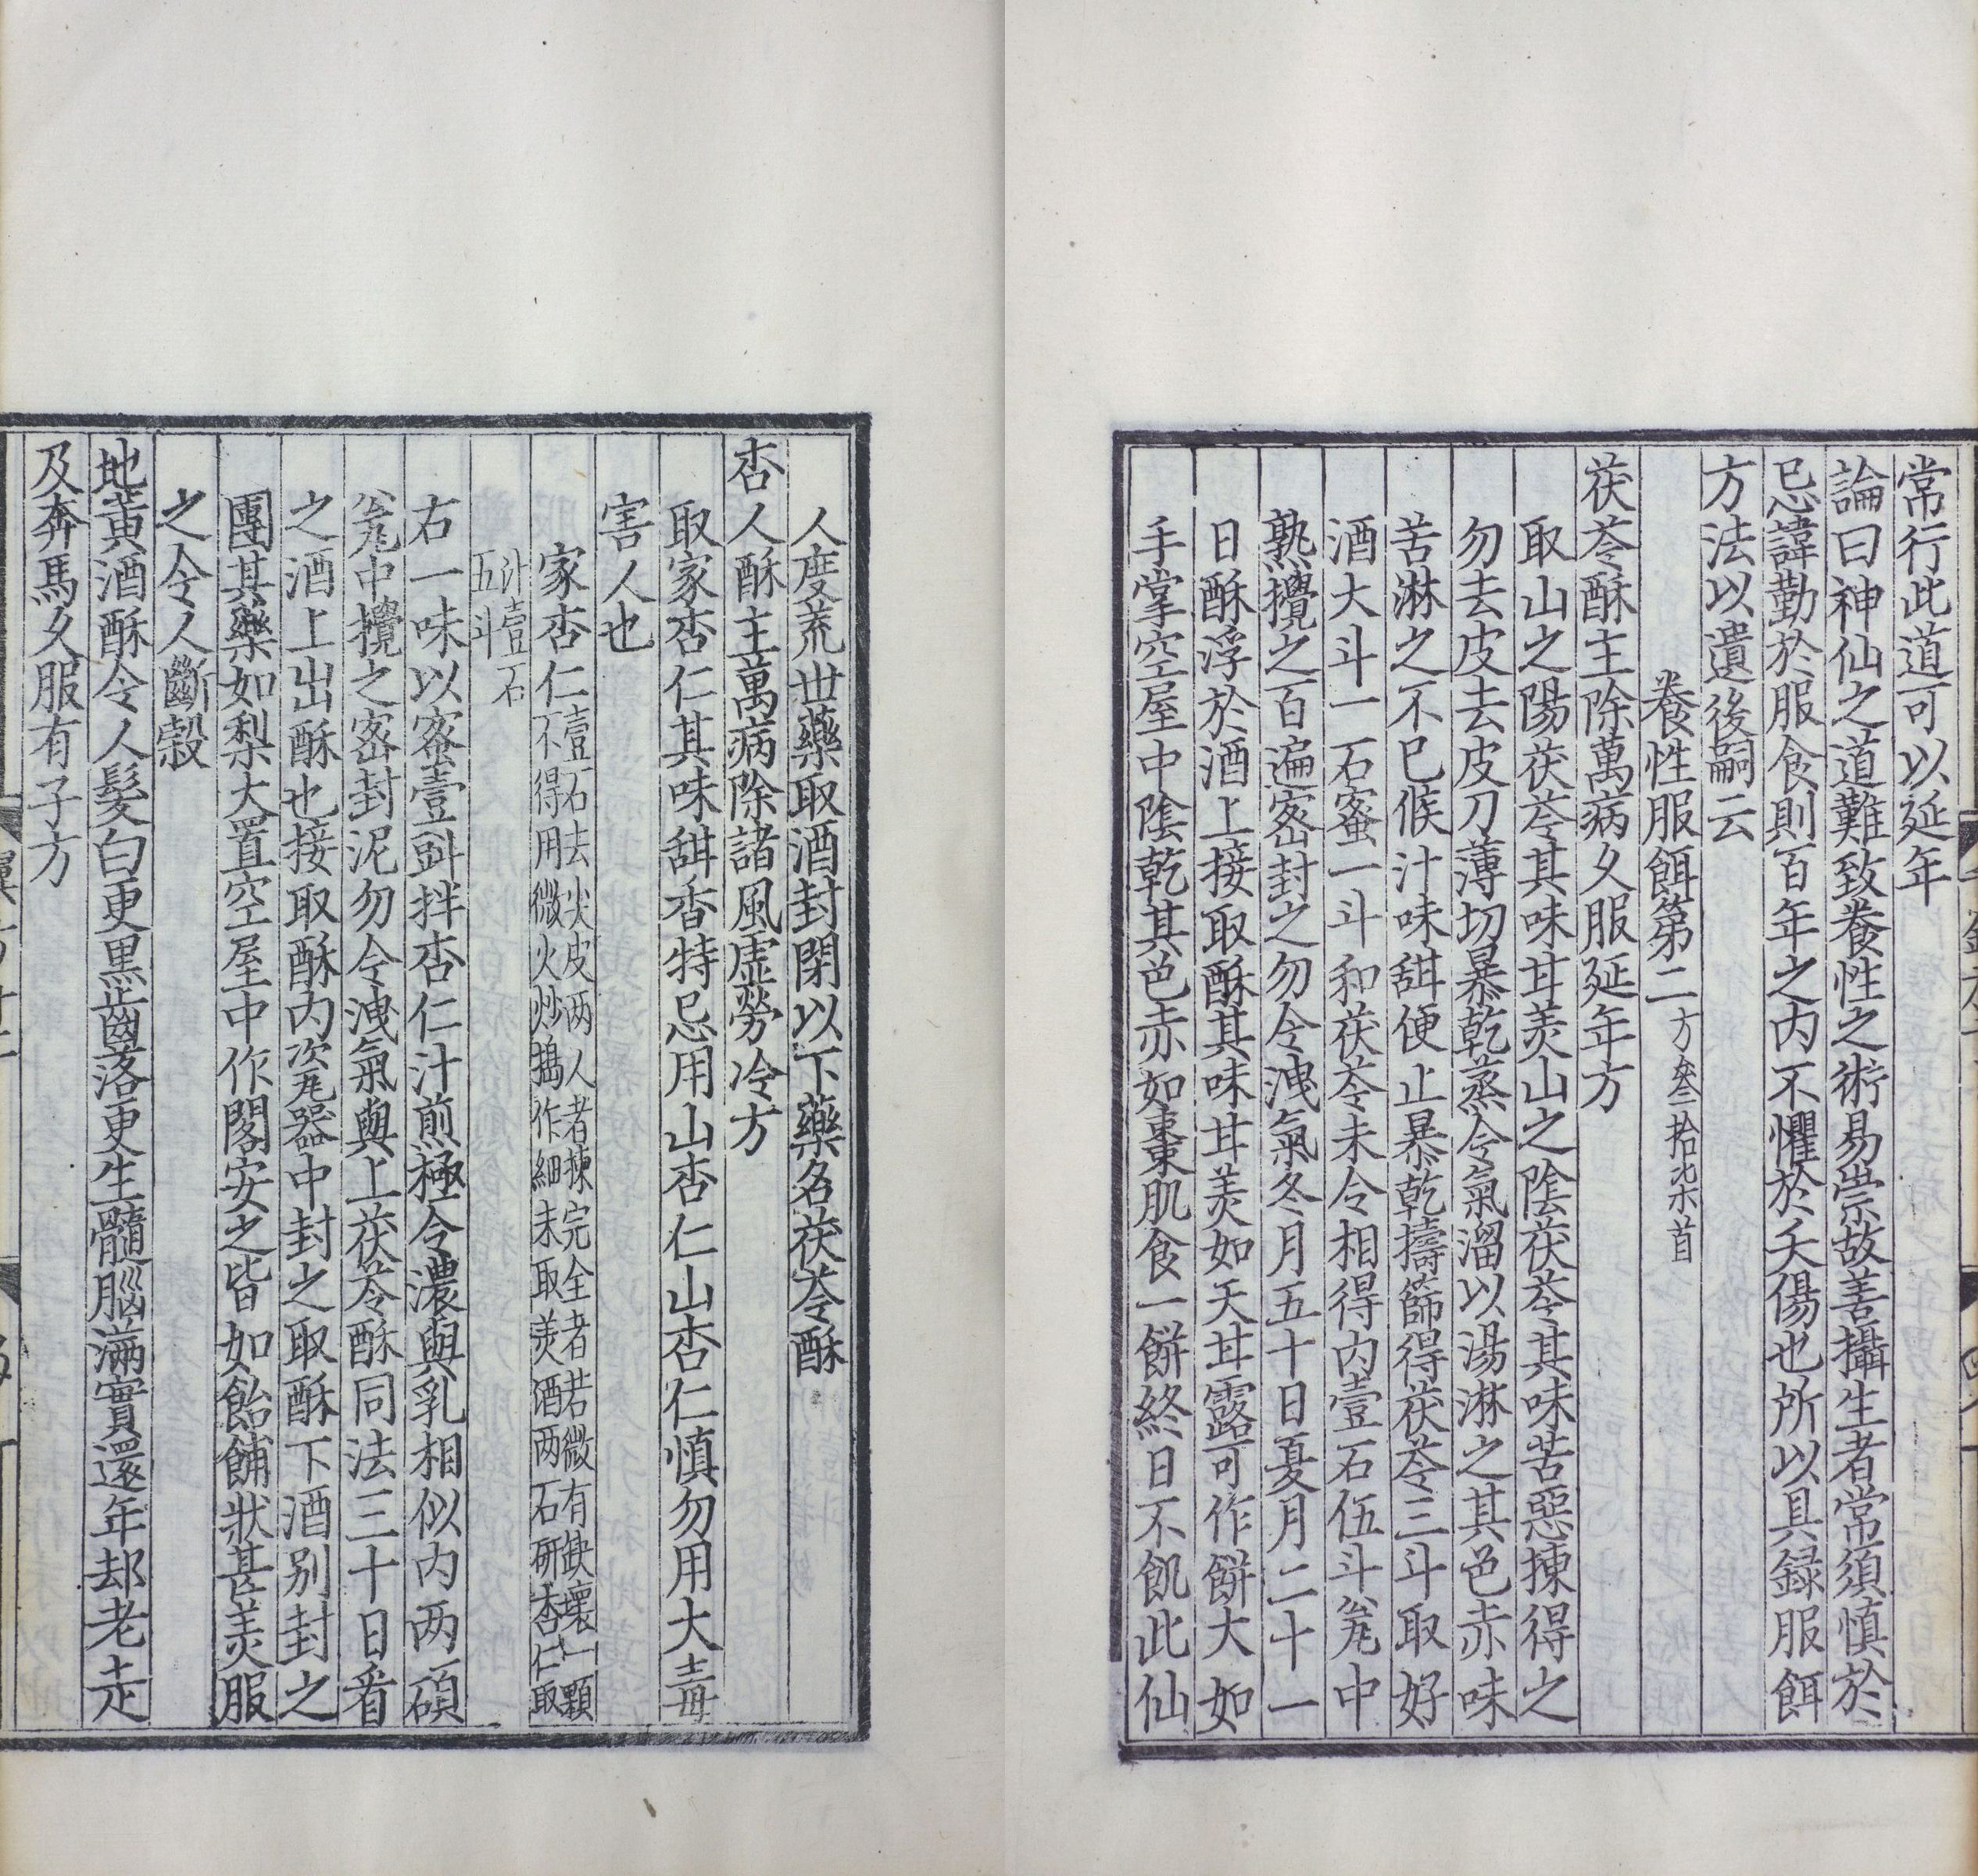 常行此道可以延年
論曰神仙之道難致養性之術易崇故善攝生者常須慎於
忌諱勤於服食則百年之内不懼於夭傷也所以具録服餌
方法以遺後嗣云
養性服餌第二方叁拾柒首
茯苓酥主除萬病久服延年方
取山之陽茯苓其味甘羙山之陰茯苓其味苦惡揀得之
勿去皮去皮刀薄切暴乾蒸令氣溜以湯淋之其色赤味
苦淋之不已候汁味甜便止暴乾擣篩得茯苓三斗取好
酒大斗一石蜜一斗和茯苓末令相得内壹石伍斗瓮中
熟攪之百遍密封之勿令洩氣冬月五十日夏月二十一
日酥浮於酒上接取酥其味甘羙如天甘露可作餅大如
手掌空屋中陰乾其色赤如棗肌食一餅終日不飢此仙
人度荒世藥取酒封閉以下藥名茯苓酥
杏人酥主萬病除諸風虚勞冷方
取家杏仁其味甜香特忌用山杏仁山杏仁慎勿用大毒
害人也
家杏仁壹石去尖皮两人者揀完全者若微有缺壞一顆
不得用微火炒搗作細末取羙酒两石研杏仁取
汁壹石
五斗
右一味以蜜壹㪷拌杏仁汁煎極令濃與乳相似内两碩
瓮中攪之密封泥勿令洩氣與上茯苓酥同法三十日看
之酒上出酥也接取酥内瓷器中封之取酥下酒别封之
團其藥如梨大置空屋中作閣安之皆如飴餔狀甚羙服
之令人斷穀
地黄酒酥令人髮白更黒齒落更生髓腦滿實還年却老走
及奔馬久服有子方